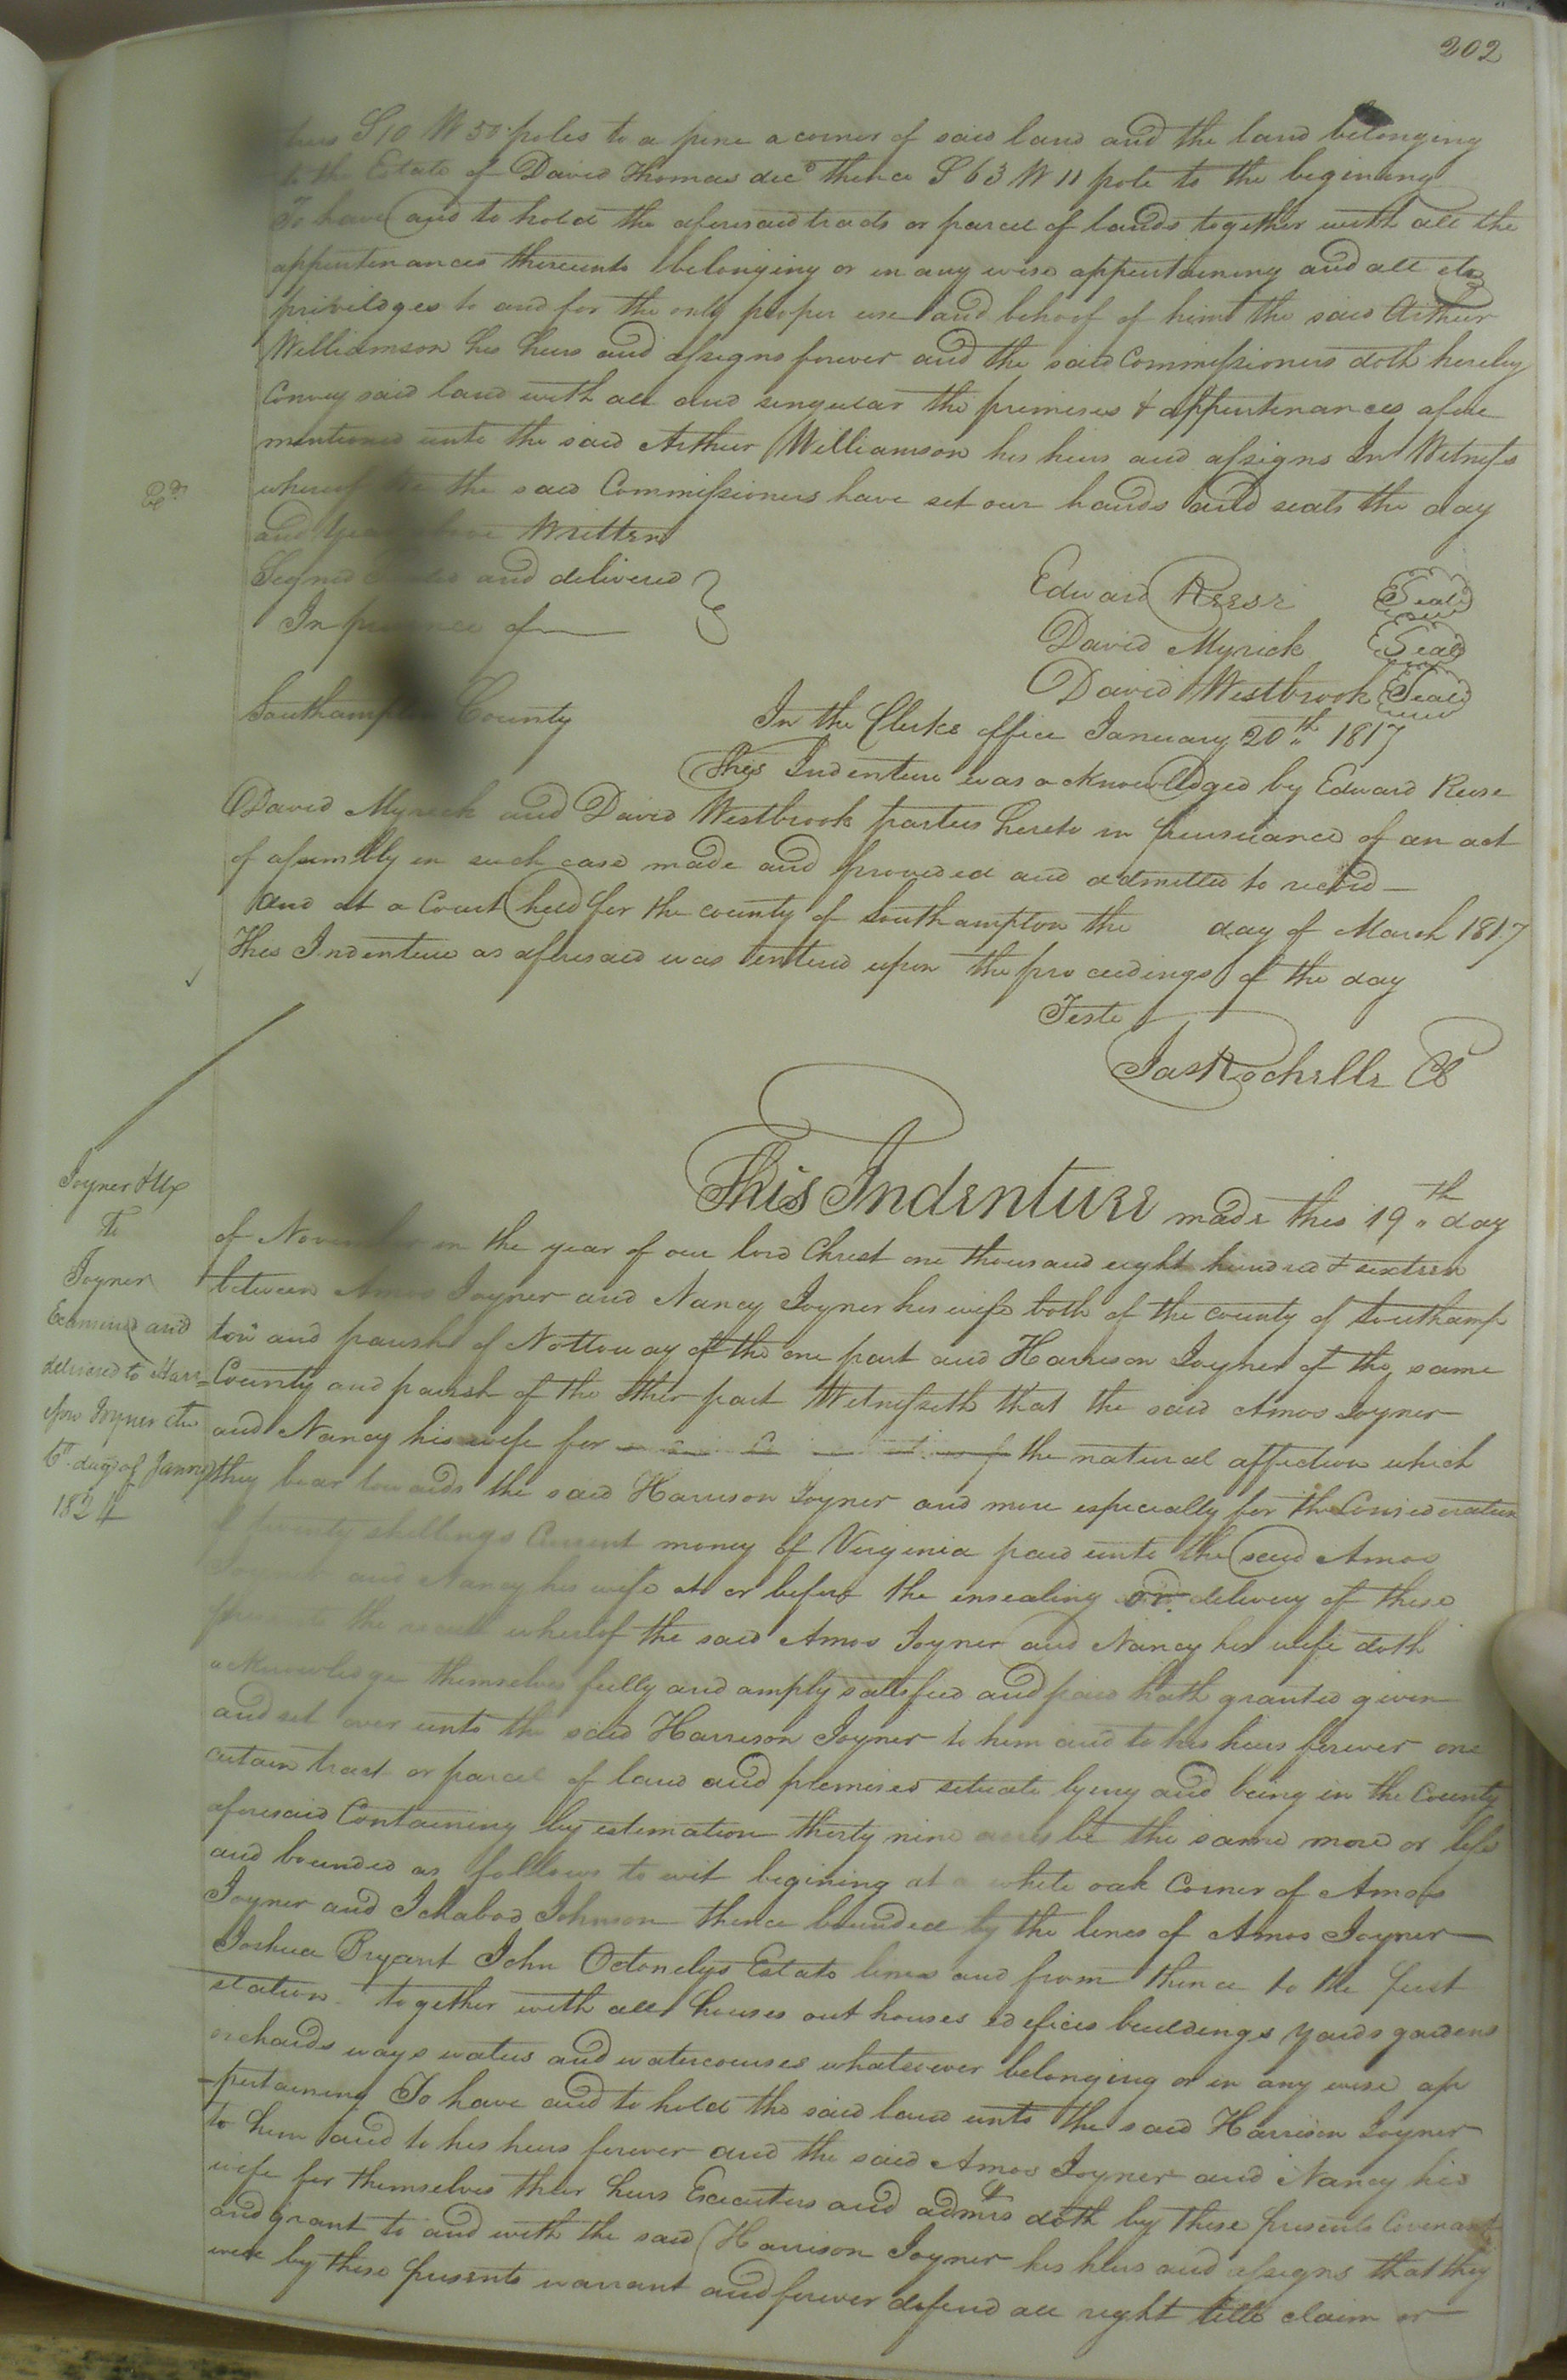 202
S 10 W 50 poles to a pine a corner of said land and the land belonging
to the Estate of David Thomas decd thence S 63 W 11 pole to the begining
To have and to hold the aforesaid tracts or parcel of lands together with all the
appurtenances thereunto belonging or in any wise appurtaining and all
priviledges to and for the only proper use and behoof of him the said Arthur
Williamson his heirs and assigns forever and the said Commissioners doth hereby
Convey said land with all and singular the premises & appurtenances afore
mentioned unto the said Arthur Williamson his heirs and assigns In Witness
whereof the said Commissioners have set our hands and seals the day
and Written
Signed and delivered
In presence of
Edward Reese Seal
David Myrick Seal
David Westbrook Seal
Southampton County
In the Clerks office January 20th 1817
This Indenture was acknowledged by Edward Reese
David Myrick and David Westbrook parties hereto in pursuance of an act
of assembly in such case made and provided and admitted to record
And at a Court held for the county of Southampton the day of March 1817
This Indenture as aforesaid was entered upon the proceedings of the day
Teste
Jas Rochelle CC
Joyner & Ux
To
Joyner
Examined and
delivered to Harri=
son Joyner the
6th day of Janry
1824
This Indenture made this 19th day
of November in the year of our lord Christ one thousand eight hundred & sixteen
between Amos Joyner and Nancy Joyner his wife both of the county of Southamp
ton and parish of Nottoway of the one part and Harrison Joyner of the same
County and parish of the other part Witnesseth that the said Amos Joyner
and Nancy his wife for the natural affection which
they bear towards the said Harrison Joyner and more especially for the Consideration
of twenty shillings Current money of Virginia paid unto the said Amos
Joyner and Nancy his wife at or before the ensealing or delivery of these
the receipt whereof the said Amos Joyner and Nancy his wife doth
acknowledge themselves fully and amply satisfied and paid hath granted given
and set over unto the said Harrison Joyner to him and to his heirs forever one
certain tract or parcel of land and premises situate lying and being in the County
aforesaid Containing by estimation thirty nine acres be the same more or less
and bounded as follows to wit begining at a white oak Corner of Amos
Joyner and Ichabod Johnson thence bounded by the lines of Amos Joyner
Joshua Bryant John Octonelys Estate lines and from thence to the first
station together with all houses out houses edefices buildings yards gardens
orchards ways waters and watercourses whatsoever belonging or in any wise ap
-pertaining To have and to hold the said land unto the said Harrison Joyner
to him and to his heirs forever and the said Amos Joyner and Nancy his
wife for themselves their heirs Executors and admrs doth by these presents Covenant
and grant to and with the said Harrison Joyner his heirs and assigns that they
will by these presents warrant and forever defend all right title claim or